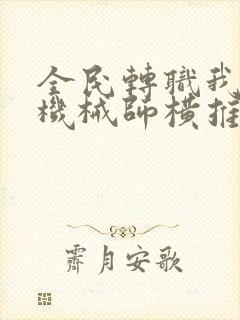 全民轉職我
機械師橫推
霽月安歌